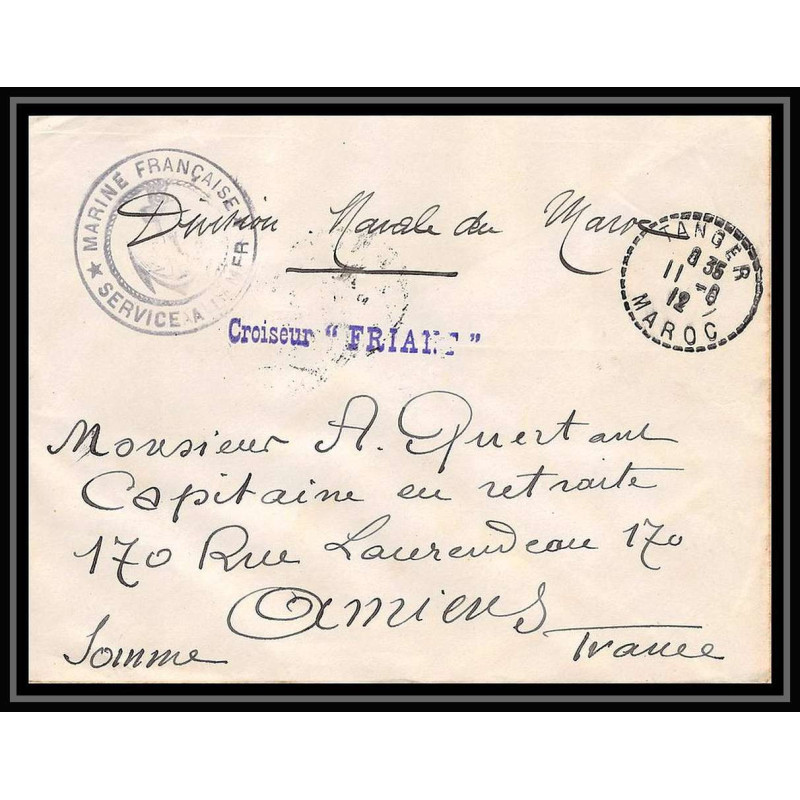 MARINE FRANÇAISE
★ SERVICE A LA MER
Division Navale du Maroc
TANGER
8 35
11 -8
12
MAROC
Croiseur "FRIANT"
Monsieur A. Quertant
Capitaine en retraite
170 Rue Laurendeau 170
Amiens
Somme
France